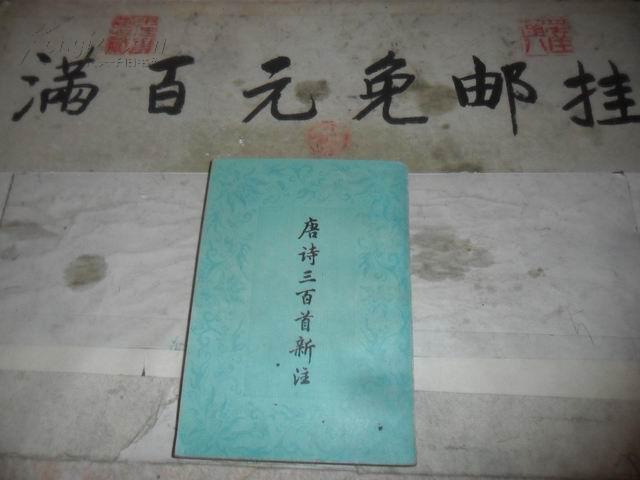 满百元免邮挂
唐诗三百首新注